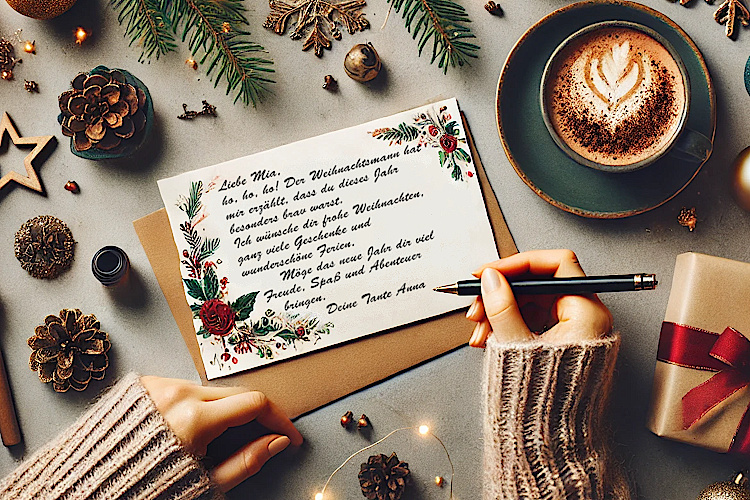 Liebe Mia,
ho, ho, ho! Der Weihnachtsmann hat
mir erzählt, dass du dieses Jahr
besonders brav warst.
Ich wünsche dir frohe Weihnachten,
ganz viele Geschenke und
wunderschöne Ferien.
Möge das neue Jahr dir viel
Freude, Spaß und Abenteuer
bringen.
Deine Tante Anna